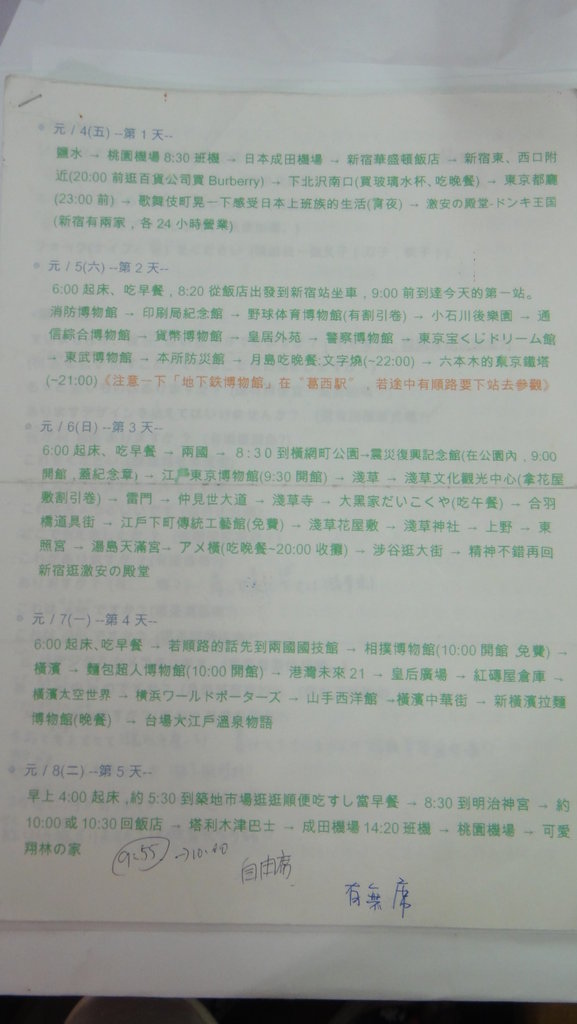 元 / 4(五) --第 1 天--
鹽水 → 桃園機場 8:30 班機 → 日本成田機場 → 新宿華盛頓飯店 → 新宿東、西口附
近(20:00 前逛百貨公司買 Burberry) → 下北沢南口(買玻璃水杯、吃晚餐) → 東京都廳
(23:00 前) → 歌舞伎町晃一下感受日本上班族的生活(宵夜) → 激安の殿堂-ドンキ王国
(新宿有兩家，各 24 小時營業)
元 / 5(六) --第 2 天--
6:00 起床、吃早餐，8:20 從飯店出發到新宿站坐車，9:00 前到達今天的第一站。
消防博物館 → 印刷局紀念館 → 野球体育博物館(有割引卷) → 小石川後樂園 → 通
信綜合博物館 → 貨幣博物館 → 皇居外苑 → 警察博物館 → 東京宝くじドリーム館
→ 東武博物館 → 本所防災館 → 月島吃晚餐:文字燒(~22:00) → 六本木的東京鐵塔
(~21:00)《注意一下「地下鉄博物館」在〝葛西駅〞，若途中有順路要下站去參觀》
元 / 6(日) --第 3 天--
6:00 起床、吃早餐 → 兩國 → 8：30 到橫網町公園→震災復興記念館(在公園內，9:00
開館，蓋紀念章) → 江 東京博物館(9:30 開館) → 淺草 → 淺草文化觀光中心(拿花屋
敷割引卷) → 雷門 → 仲見世大道 → 淺草寺 → 大黑家だいこくや(吃午餐) → 合羽
橋道具街 → 江戶下町傳統工藝館(免費) → 淺草花屋敷 → 淺草神社 → 上野 → 東
照宮 → 湯島天滿宮→ アメ橫(吃晚餐~20:00 收攤) → 涉谷逛大街 → 精神不錯再回
新宿逛激安の殿堂
元 / 7(一) --第 4 天--
6:00 起床、吃早餐 → 若順路的話先到兩國國技館 → 相撲博物館(10:00 開館，免費) →
橫濱 → 麵包超人博物館(10:00 開館) → 港灣未來 21 → 皇后廣場 → 紅磚屋倉庫 →
橫濱太空世界 → 横浜ワールドポーターズ → 山手西洋館 →橫濱中華街 → 新橫濱拉麵
博物館(晚餐) → 台場大江戶溫泉物語
元 / 8(二) --第 5 天--
早上 4:00 起床，約 5:30 到築地市場逛逛順便吃すし當早餐 → 8:30 到明治神宮 → 約
10:00 或 10:30 回飯店 → 塔利木津巴士 → 成田機場 14:20 班機 → 桃園機場 → 可愛
翔林の家
9:55 →10:40
自由席
有無席